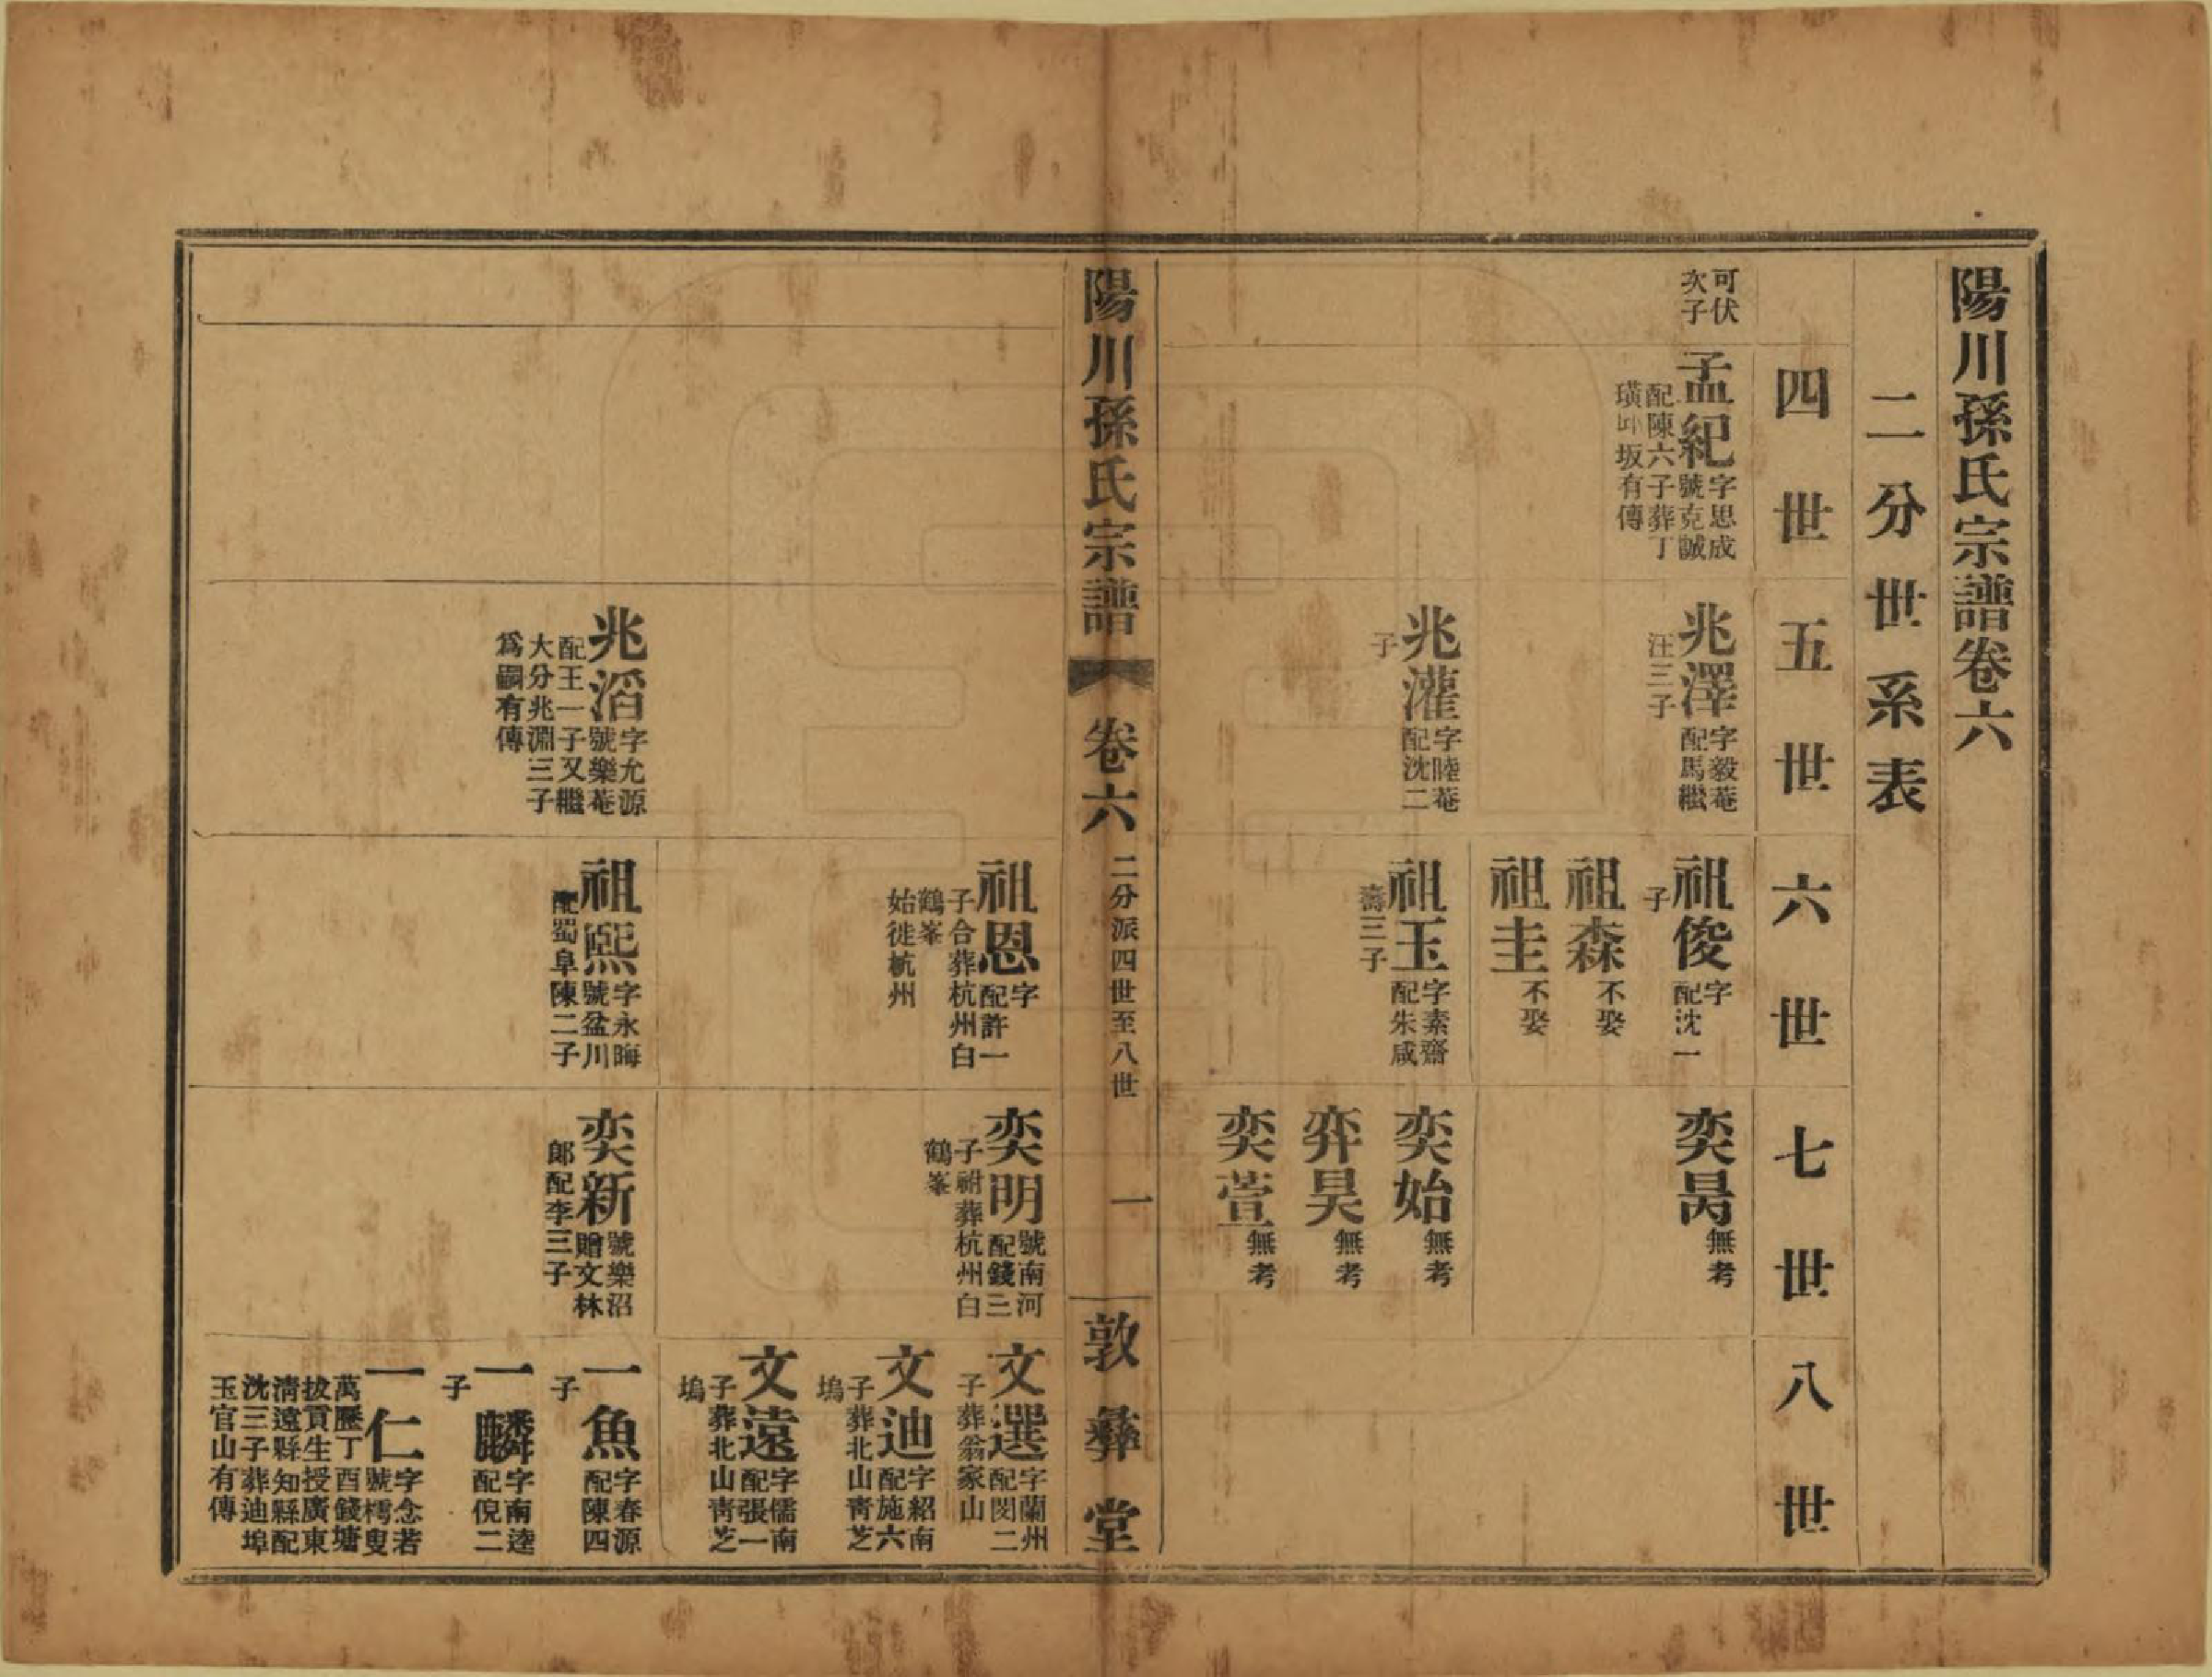 陽川孫氏宗譜卷六
二分世系表
四世 五世 六世 七世 八世
可伏
次子
孟紀 字思成
號克誠
配陳六子葬丁
璜坂有傳
兆澤 字毅菴
配馬繼
汪三子
祖俊 字
配沈一
子
奕昺 無考
祖森 不娶
祖圭 不娶
兆灌 字睦菴
配沈二
子
祖玉 字素齋
配朱咸
壽三子
奕始 無考
弈昊 無考
奕萱 無考
陽川孫氏宗譜 卷六 二分派四世至八世 一 敦彝堂
祖恩 字
配許一
子合葬杭州白
鶴峯
始徙杭州
奕明 號南河
配錢三
子祔葬杭州白
鶴峯
文選 字蘭州
配閔二
子葬翁家山
文迪 字紹南
配施六
子葬北山靑芝
塢
文遠 字儒南
配張一
子葬北山靑芝
塢
兆滔 字允源
號樂菴
配王一子又繼
大分兆淵三子
爲嗣有傳
祖熙 字永晦
號盆川
配蜀阜陳二子
奕新 號樂沼
贈文林
郎配李三子
一魚 字春源
配陳四
子
一麟 字南逵
配倪二
子
一仁 字念若
號樗叟
萬歷丁酉錢塘
拔貢生授廣東
淸遠縣知縣配
沈三子葬迪埠
玉官山有傳